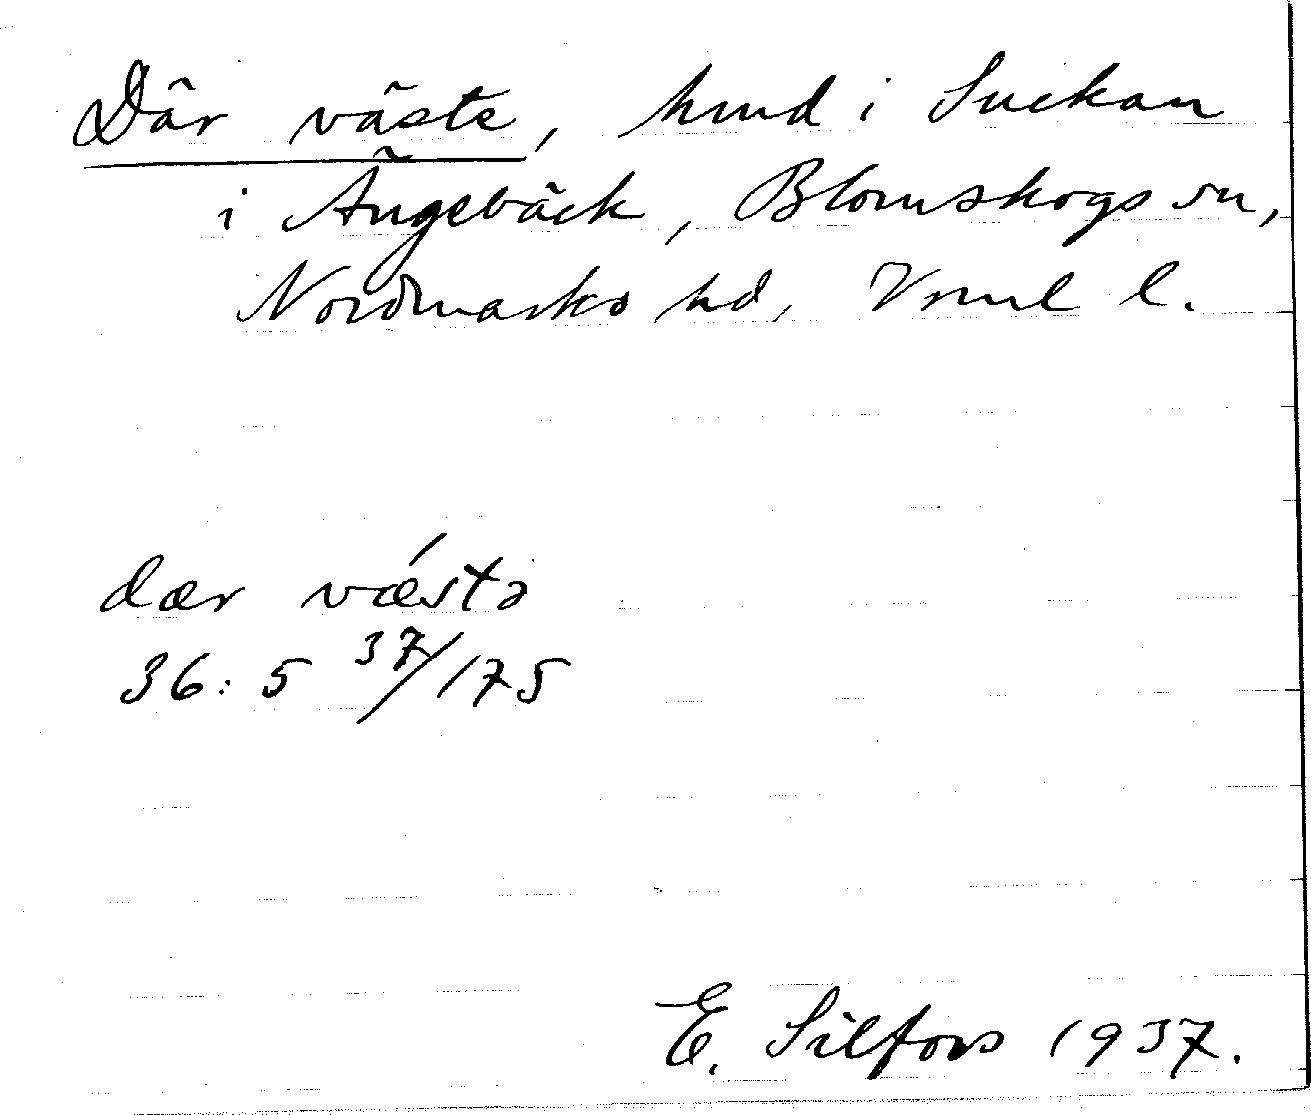 Där väste, hmd i Suckan
i Ängebäck, Blomskogs sn,
Nordmarks hd, Vrml l.
dær vǽstə
36: 5 37/175
E. Silfors 1937.